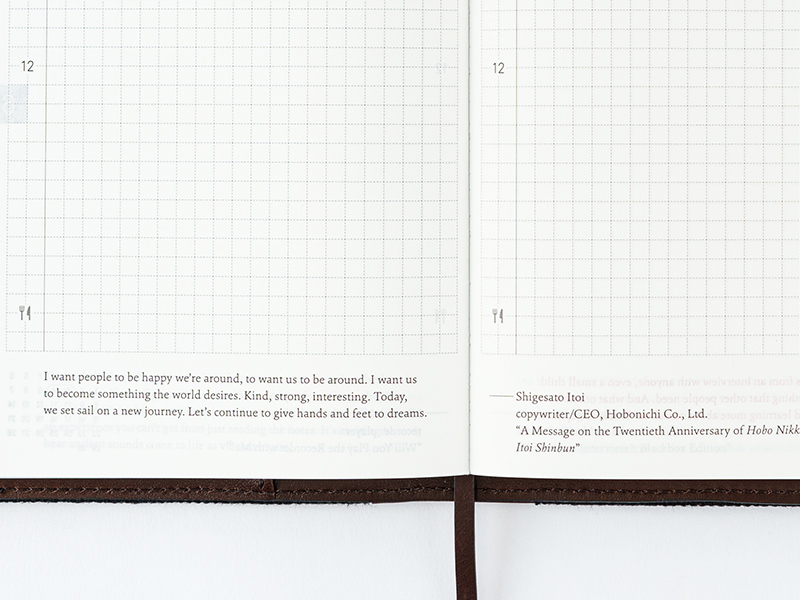 12
12
I want people to be happy we're around, to want us to be around. I want us
to become something the world desires. Kind, strong, interesting. Today,
we set sail on a new journey. Let's continue to give hands and feet to dreams.
Shigesato Itoi
copywriter/CEO, Hobonichi Co., Ltd.
"A Message on the Twentieth Anniversary of Hobo Nikk
Itoi Shinbun"